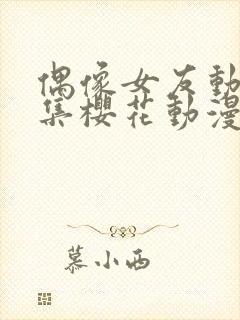 偶像女友動
集櫻花動漫
慕小西